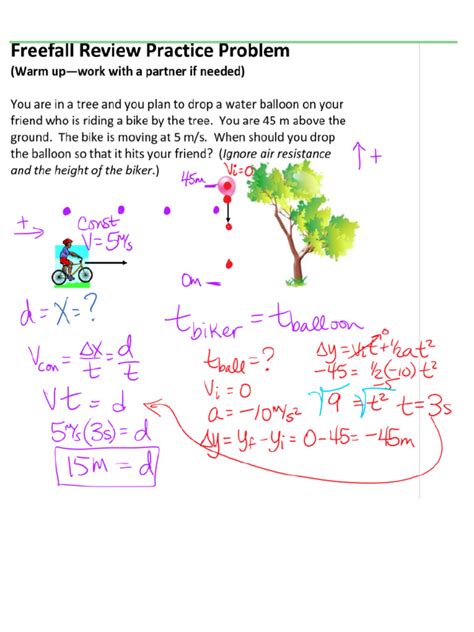 Freefall Review Practice Problem
(Warm up—work with a partner if needed)
You are in a tree and you plan to drop a water balloon on your
friend who is riding a bike by the tree. You are 45 m above the
ground. The bike is moving at 5 m/s. When should you drop
the balloon so that it hits your friend? (Ignore air resistance
and the height of the biker.)
↑+
Vi=0
45m
+
→
Const
V=5m/s
0m
d=X=?
t biker = t balloon
Vcon = Δx/t = d/t
Vt = d
5m/s(3s) = d
15m = d
t ball = ?
Vi = 0
a = -10m/s²
Δy = yf - yi = 0-45 = -45m
Δy = Vit + 1/2at²
0
-45 = 1/2(-10)t²
-5
√9 = √t² t = 3s